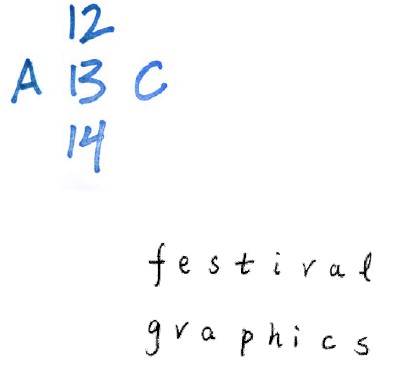 12
A 13 C
14
festival
graphics